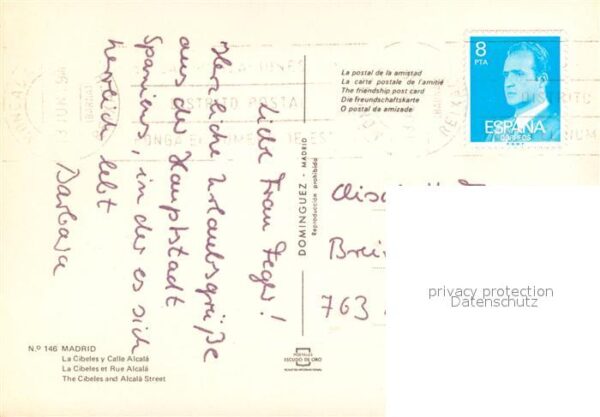 Liebe Frau Feger!
Herzliche Urlaubsgrüße
aus der Hauptstadt
Spaniens, in der es sich
herrlich lebt
Barbara
N.º 146 MADRID
La Cibeles y Calle Alcalá
La Cibeles et Rue Alcalá
The Cibeles and Alcalá Street
DOMINGUEZ - MADRID
Reproducción prohibida
POSTALES
ESCUDO DE ORO
La postal de la amistad
La carte postale de l'amitié
The friendship post card
Die freundschaftskarte
O postal da amizade
8
PTA
ESPAÑA
CORREOS
DISTRITO POSTAL
763
privacy protection
Datenschutz